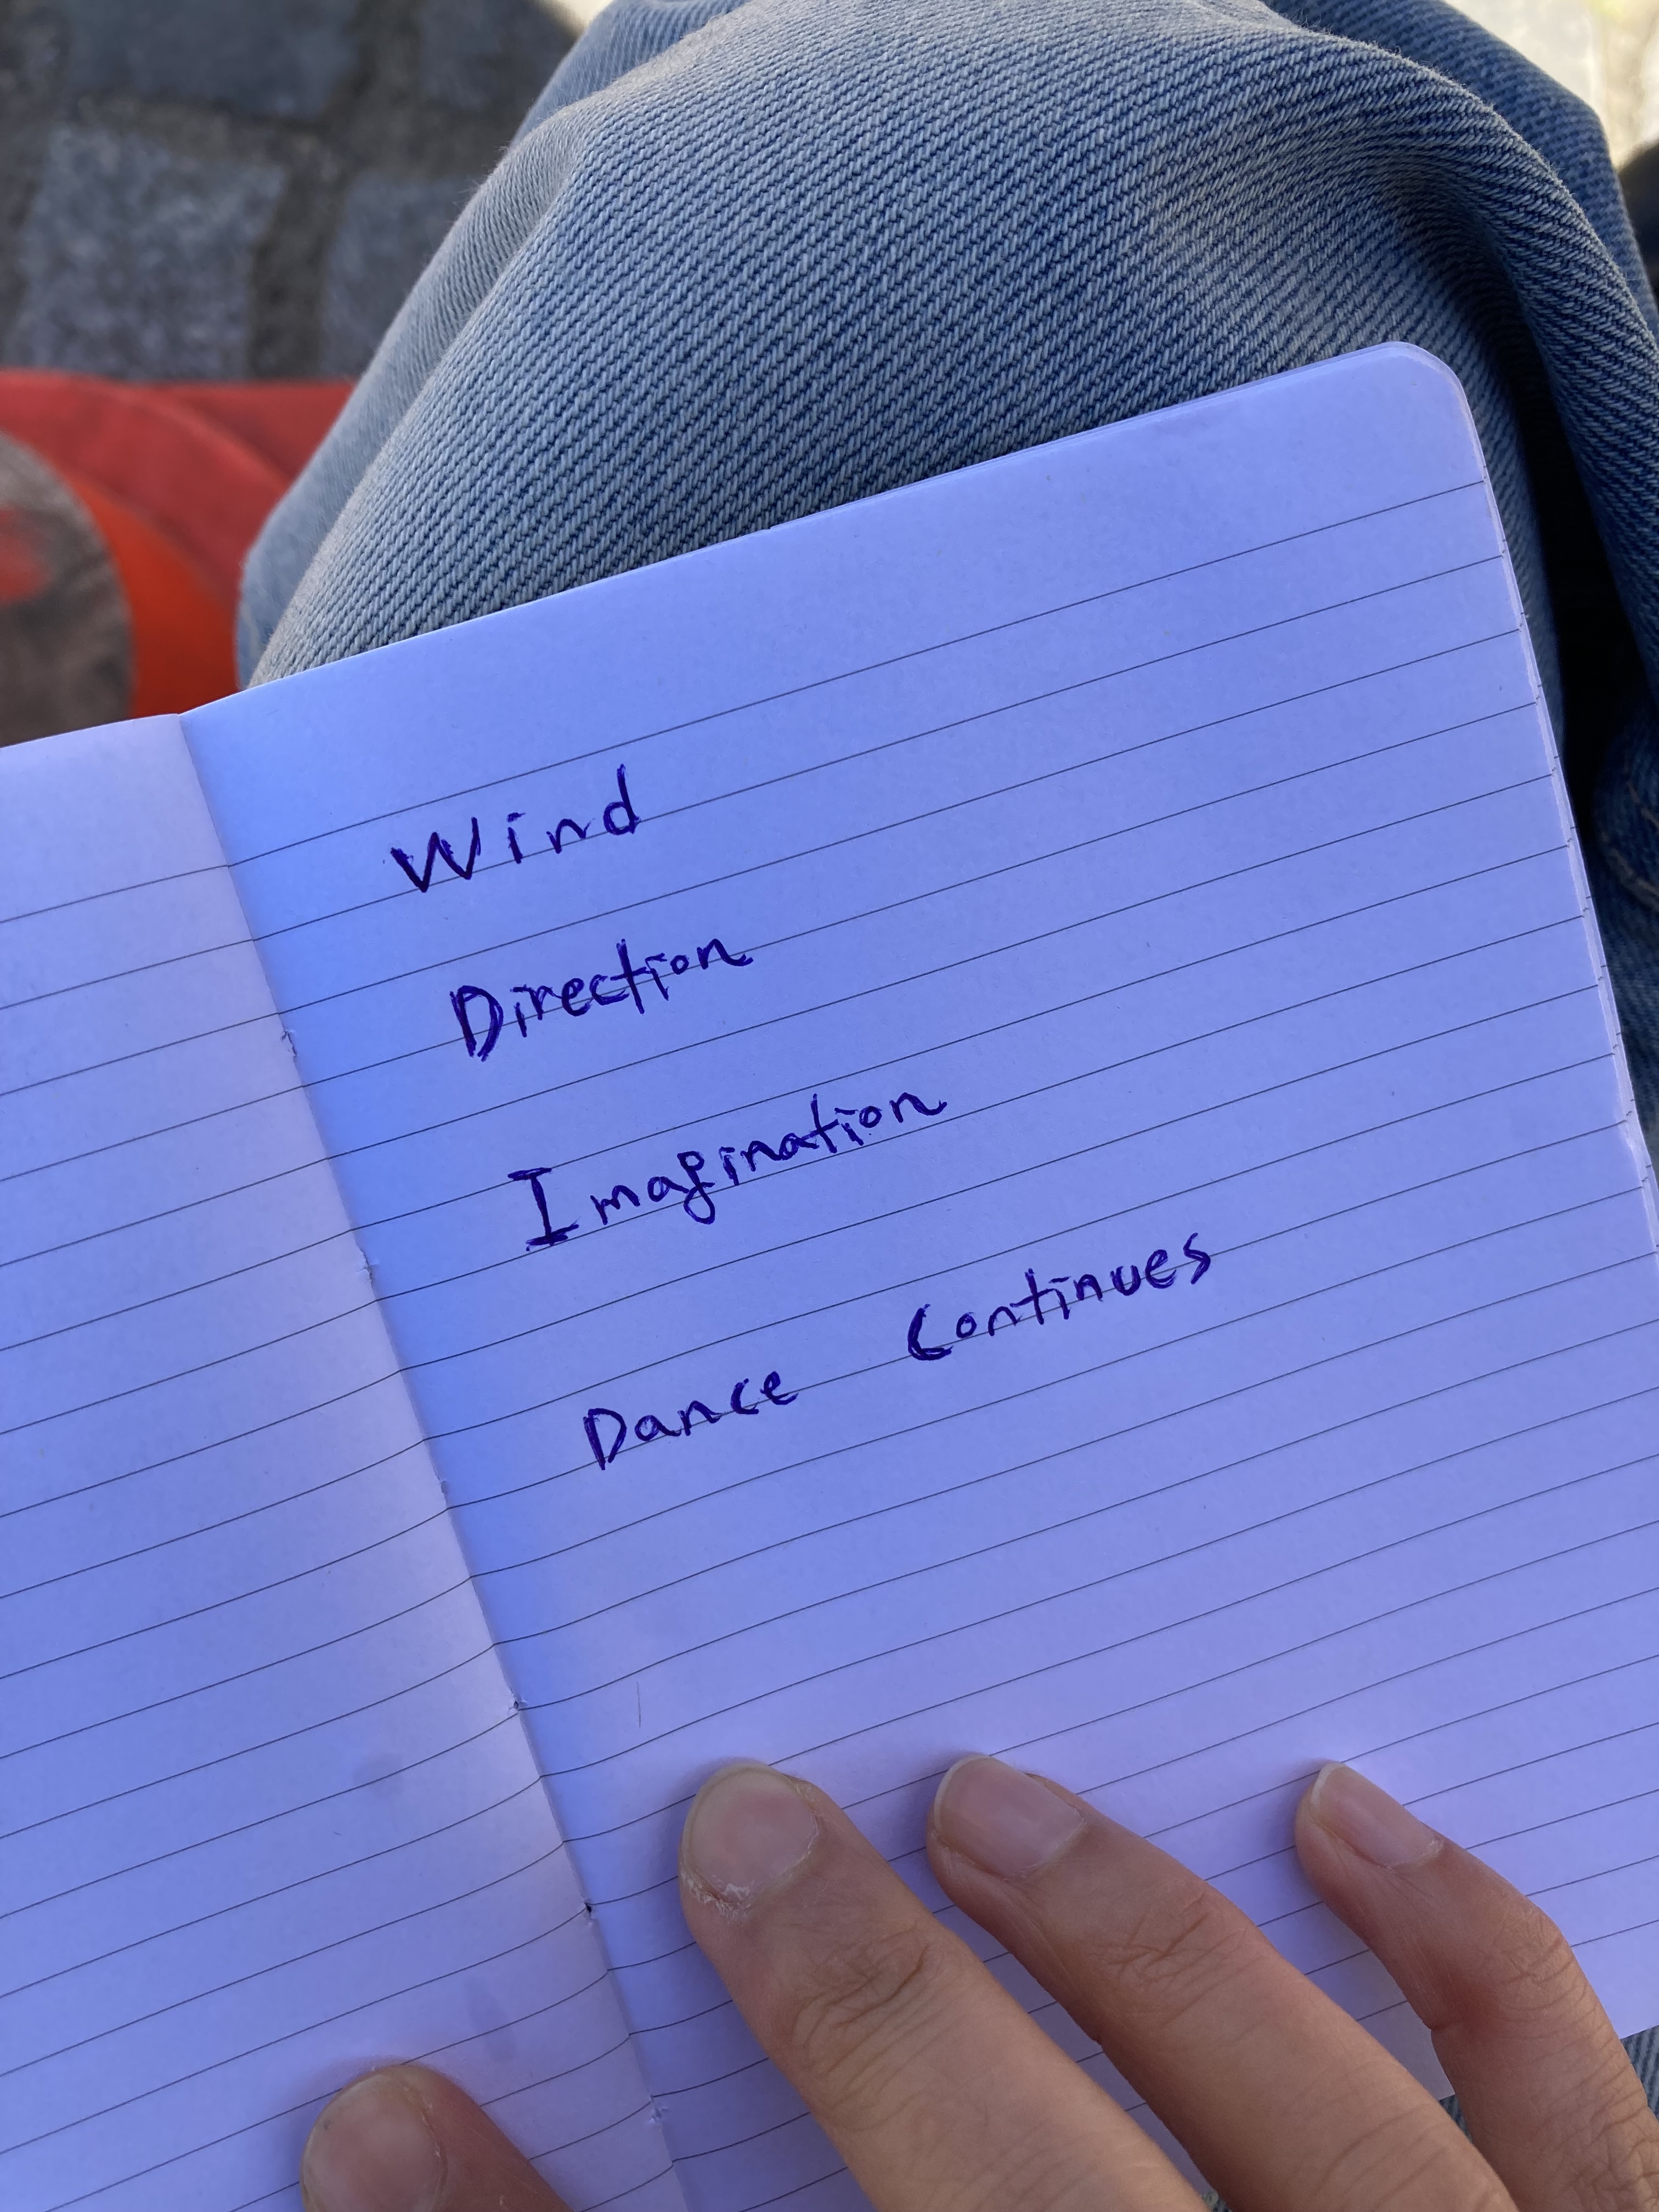 Wind
Direction
Imagination
Dance Continues